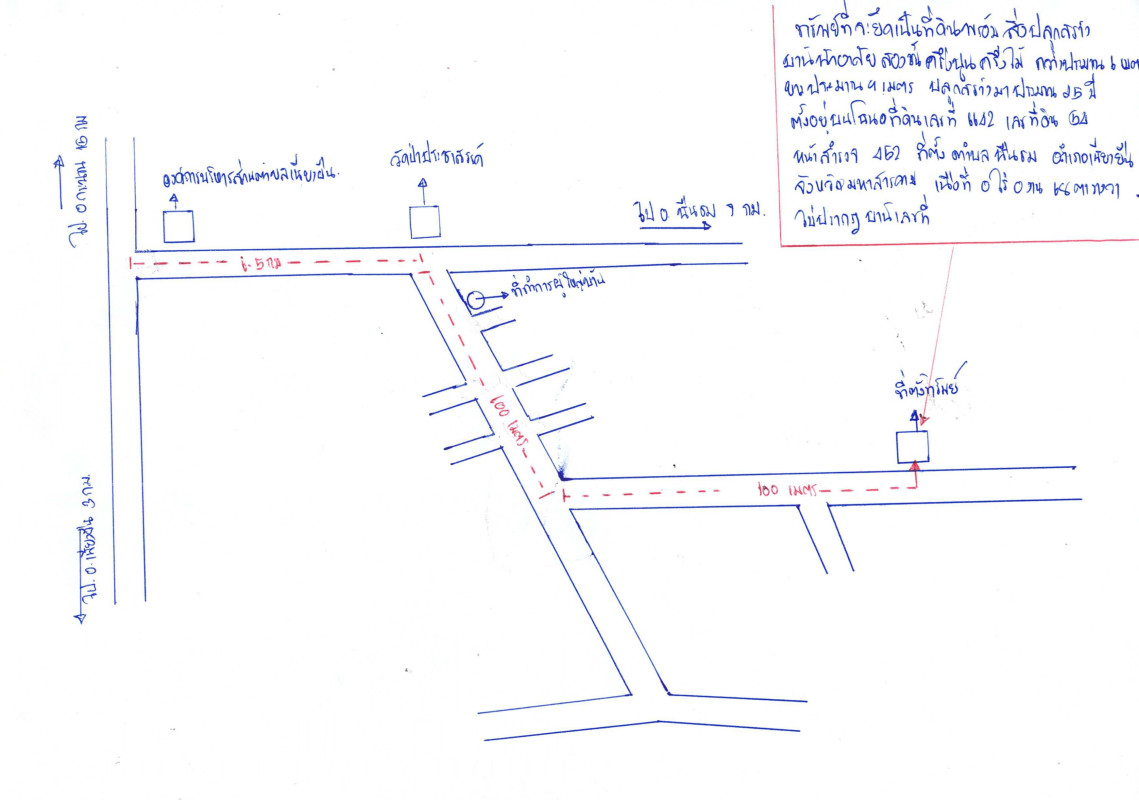 ทรัพย์ที่จะยึดเป็นที่ดินพร้อมสิ่งปลูกสร้าง
บ้านพักอาศัยสองชั้นครึ่งปูนครึ่งไม้ กว้างประมาณ 6 เมตร
ยาวประมาณ 9 เมตร ปลูกสร้างมาประมาณ 25 ปี
ตั้งอยู่บนโฉนดที่ดินเลขที่ เลขที่ดิน 54
หน้าสำรวจ 452 ที่ตั้งตำบลชื่นชม อำเภอเชียงยืน
จังหวัดมหาสารคาม เนื้อที่ 0 ไร่ 0 งาน ตารางวา
ไม่ปรากฏบ้านเลขที่
ไป อ.
องค์การบริหารส่วนตำบล
วัดป่าประชาสรรค์
ไป อ. ชื่นชม 7 กม.
กม
ที่ทำการผู้ใหญ่บ้าน
100 เมตร
ที่ตั้งทรัพย์
100 เมตร
ไป อ.เชียงยืน กม.